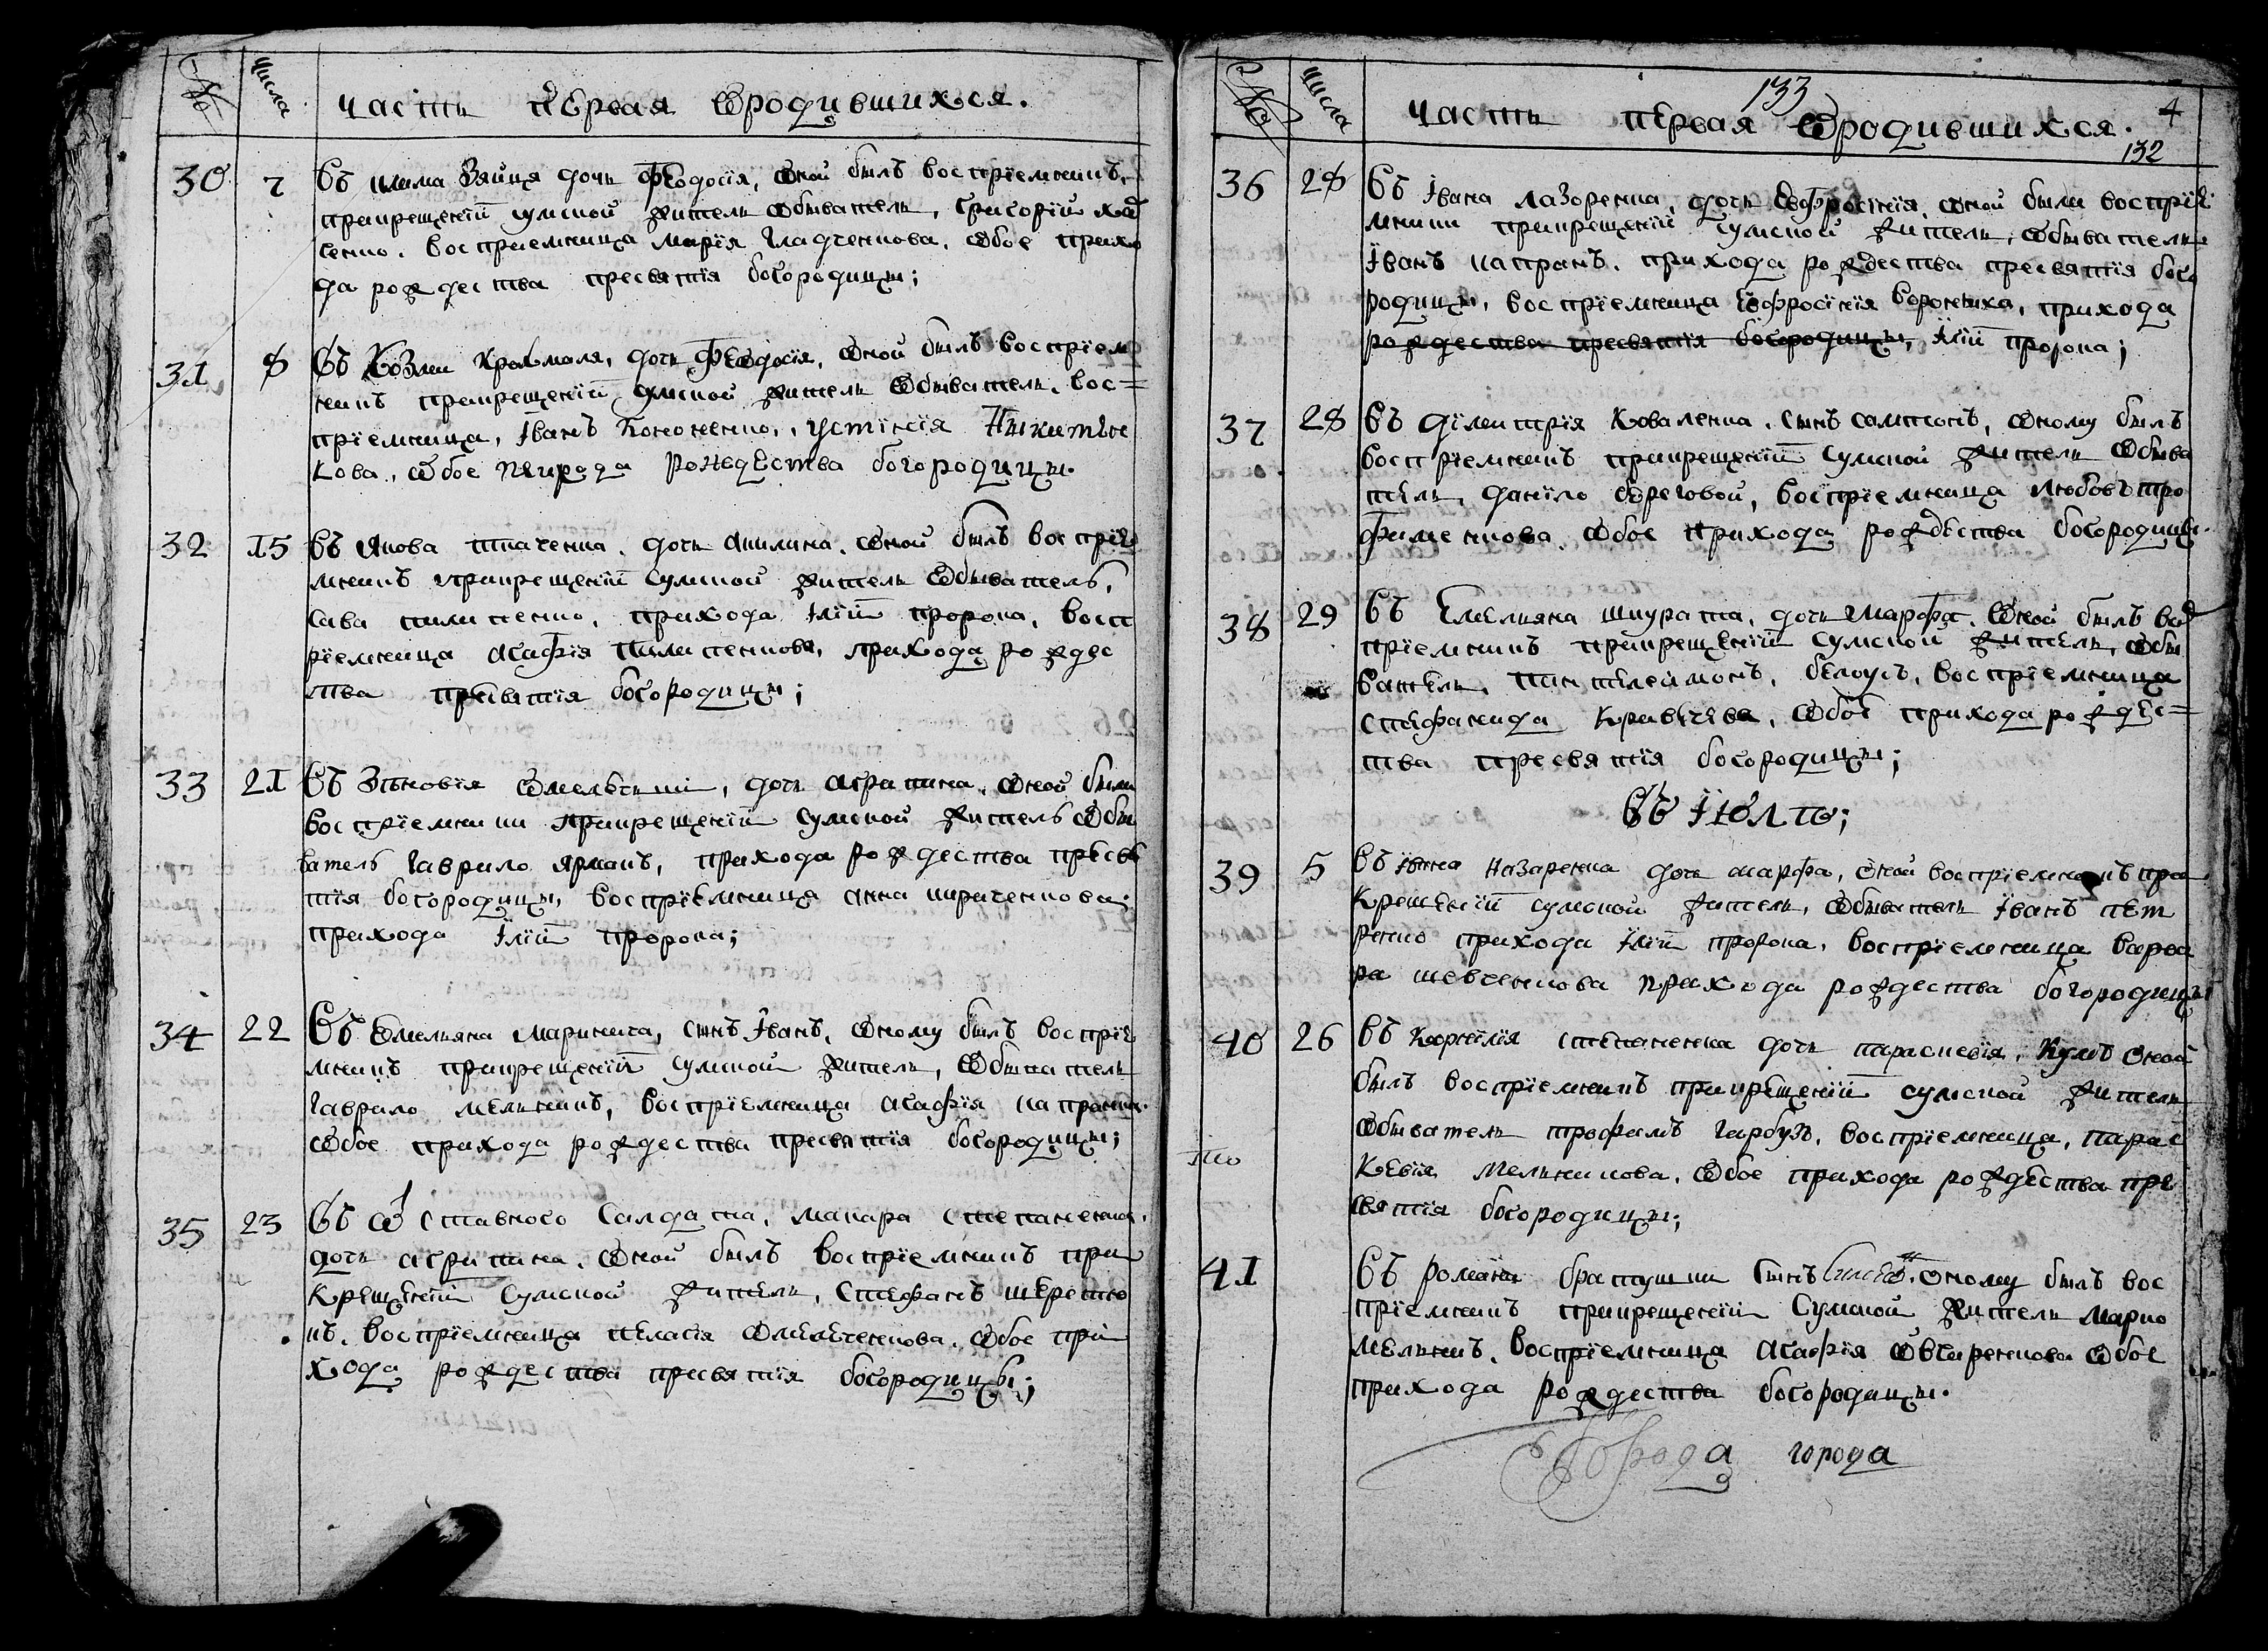 числа
часть первая ѿродившихся.
30 7 Въ клима Зайця дочь Феодосія, Оной былъ воспріемникъ,
прикрещеніи сумской житель Обыватель, Григорій
сенко. восприемница марія Гладченкова, Обое прихо
да рождества пресвятія богородицы;
31 8 Въ Козми Крахмаля, дочь Феодосія, Оной былъ воспріем
никъ прикрещеніи Сумской житель Обыватель. вос=
пріемница, Іванъ Кононенко, устінія Никитен
кова, Обое прихода рождества богородицы.
32 15 Въ Якова ткаченка. дочь Акилина. Оной былъ воспріе
мникъ прикрещеніи Сумской житель Обыватель,
Сава пилипенко, прихода Іліи пророка, восп
ріемница Агафія Пилипенкова, прихода рождес
тва пресвятія богородицы;
33 21 Въ Зѣновія Омельскии, дочь Агрипина. Оной были
воспріемники прикрещеніи Сумской житель Обы
ватель Гаврило Ярмакъ, прихода рождества пресвя
тія богородицы, воспріемница Анна кириченкова;
прихода Іліи пророка;
34 22 Въ Омельяна Маринича, сынъ Іванъ, Оному былъ воспріе
мникъ прикрещеніи Сумской житель, Обыватель
Гаврило мельникъ, воспріемница Агафія
Обое прихода рождества пресвятія богородицы;
35 23 Въ Ѿставного Салдата, макара степаненка,
дочь агрипина. Оной былъ воспріемникъ при
крещеніи Сумской житель, Стефанъ шерстю
къ. воспріемница пелагія Омелченкова. Обое при
хода рождества пресвятія богородицы;
числа
133
4
часть первая ѿродившихся.
132
36 28 Въ Івана лазоренка, дочь Евфросінія, Оной были воспріе
мники прикрещеніи Сумской житель, Обыватель
Іванъ капранъ. прихода рождества пресвятія бого
родицы, воспріемница Евфросінія Воронѣика, прихода
рождества пресвятія богородицы, Іліи пророка;
37 28 Въ Дімитрія Коваленка. Сынъ сампсонъ, Оному былъ
воспріемникъ прикрещеніи Сумской житель Обыва
тель, даніло береговой, воспріемница Любовь тро
фименкова. Обое прихода рождества богородицы.
38 29 Въ Емельяна шкурата, дочь Марфа. Оной былъ вос
пріемникъ прикрещеніи Сумской житель, Обы
ватель, пантелеймонъ, белоусъ, воспріемница
Стефанида Кравчева, Обое прихода рождес=
тва пресвятія богородицы;
Въ Іюлѣ;
39 5 Въ Івана Назаренка дочь марфа, Оной воспріемникъ при
Крещеніи сумской житель, Обыватель Іванъ пет
ренко прихода Іліи пророка, воспріемница варва
ра шевченкова прихода рождества богородицы
40 26 Въ Корнілія степаненка дочь параскевія, Кумъ Оной
былъ воспріемникъ прикрещеніи сумской житель
Обыватель трофимъ гарбузъ, воспріемница, парас
кевія мельникова. Обое прихода рождества пре
святія богородицы;
41 Въ романа братушки Сынъ Оному былъ вос
пріемникъ прикрещеніи Сумской житель Марко
мельникъ. воспріемница Агафія Овчиренкова Обое
прихода рождества богородицы.
Города города